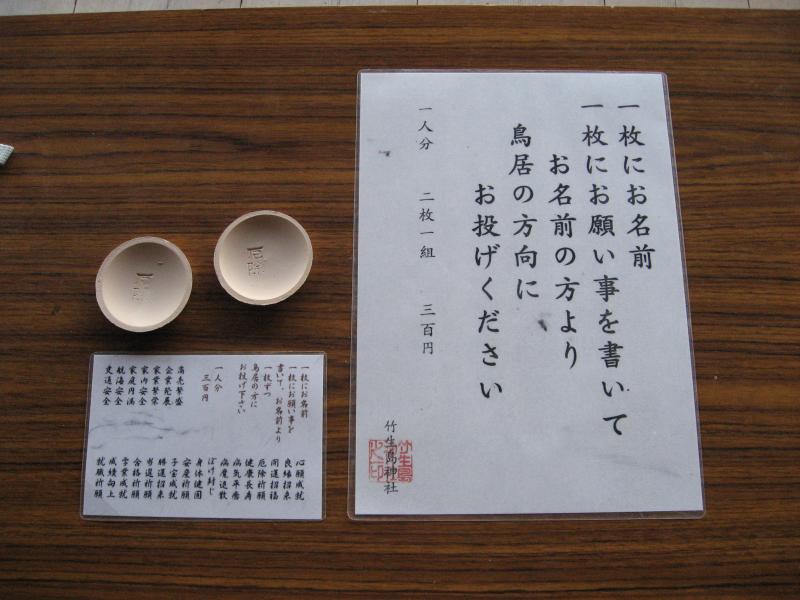 一枚にお名前
一枚にお願い事を書いて
お名前の方より
鳥居の方向に
お投げください
一人分 二枚一組 三百円
竹生島神社
厄除
厄除
一枚にお名前
一枚にお願い事を
書いて、お名前より
一枚ずつ
鳥居の方に
お投げ下さい
一人分
三百円
商売繁盛
企業発展
家業繁栄
家内安全
家庭円満
航海安全
交通安全
心願成就
良縁招来
開運招福
厄除祈願
健康長寿
病気平癒
病魔退散
ぼけ封じ
身体健固
安産祈願
子宝成就
勝運招来
当選祈願
合格祈願
学業成就
成績向上
就職祈願